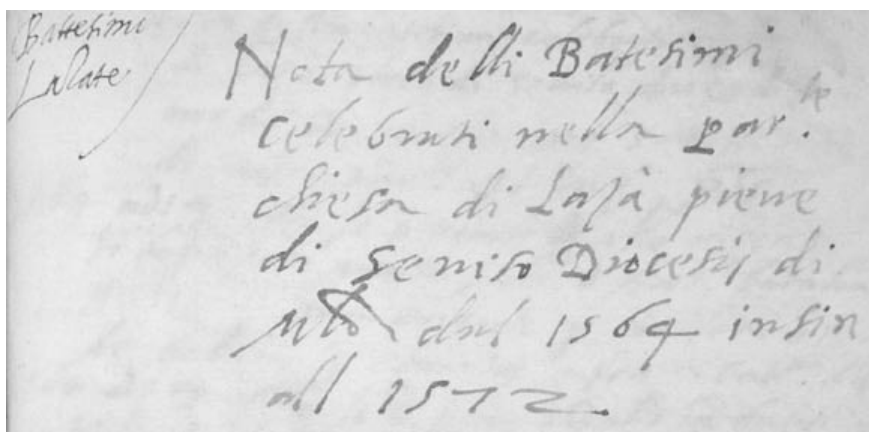 Battesimi
Lalate
Nota delli Batesimi
celebrati nella par.le
chiesa di Lasà pieve
di Seveso Diocesis di
Mlo dal 1564 insin
all 1572